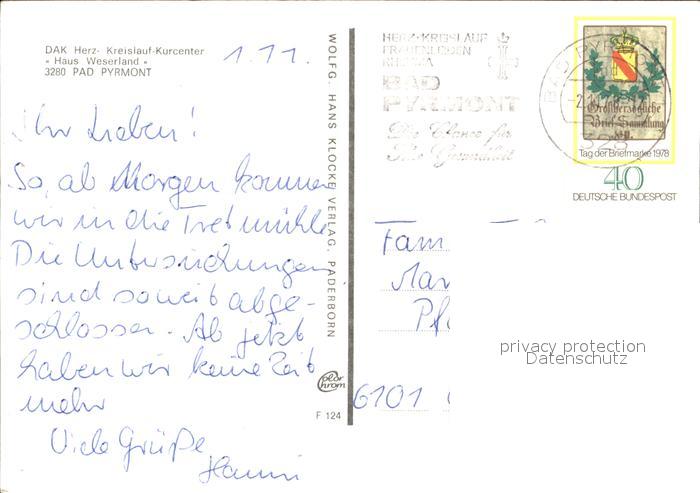 DAK Herz- Kreislauf-Kurcenter
« Haus Weserland »
3280 PAD PYRMONT
1.11.
Ihr Lieben!
So, ab Morgen kommen
wir in die Tretmühle.
Die Untersuchungen
sind soweit abge-
schlossen. Ab jetzt
haben wir keine Zeit
mehr
Viele Grüße
Hanni
WOLFG. HANS KLOCKE VERLAG, PADERBORN
Color
chrom
F 124
HERZ·KREISLAUF
FRAUENLEIDEN
RHEUMA
BAD
PYRMONT
Die Chance für
Ihre Gesundheit
BAD PYRMONT
328
Großherzogliche
Brief-Sammlung
Tag der Briefmarke 1978
40
DEUTSCHE BUNDESPOST
Fam
Mar
Pf
6101
privacy protection
Datenschutz